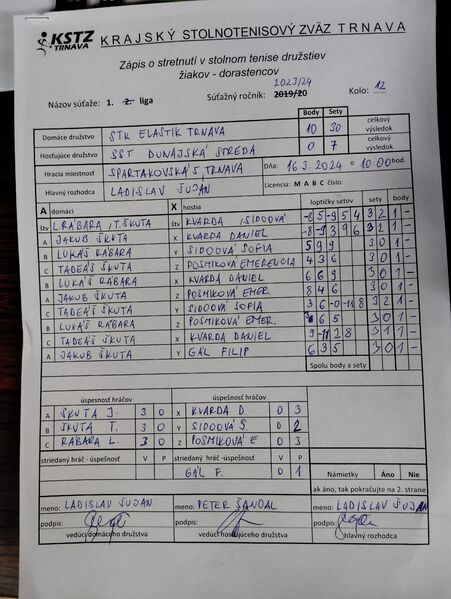 KSTZ TRNAVA KRAJSKÝ STOLNOTENISOVÝ ZVÄZ TRNAVA
Zápis o stretnutí v stolnom tenise družstiev
žiakov - dorastencov
2023/24
Názov súťaže: 1. 2. liga Súťažný ročník: 2019/20 Kolo: 12
Body Sety
Domáce družstvo STK ELASTIK TRNAVA 10 30 celkový výsledok
Hosťujúce družstvo SŠT DUNAJSKÁ STREDA 0 7 celkový výsledok
Hracia miestnosť SPARTAKOVSKÁ 5 TRNAVA Dňa: 16.3.2024 o 10:00 hod.
Hlavný rozhodca LADISLAV ŠUJAN Licencia: M A B C číslo:
A domáci X hostia loptičky setov sety body
štv L. RÁBARA, T. ŠKUTA štv KVARDA, SIDOOVÁ -8 5 -9 5 4 3 2 1 -
A JAKUB ŠKUTA X KVARDA DANIEL 3 1 1 -
B LUKÁŠ RÁBARA Y SIDOOVÁ SOFIA 5 9 9 3 0 1 -
C TADEÁŠ ŠKUTA Z POSMIKOVÁ EMERENCIA 4 3 6 3 0 1 -
B LUKÁŠ RÁBARA X KVARDA DANIEL 6 6 9 3 0 1 -
A JAKUB ŠKUTA Z POSMIKOVÁ EMER. 8 4 6 3 0 1 -
C TADEÁŠ ŠKUTA Y SIDOOVÁ SOFIA 3 6 -0 -11 8 3 2 1 -
B LUKÁŠ RÁBARA Z POSMIKOVÁ EMER. 6 5 3 0 1 -
C TADEÁŠ ŠKUTA X KVARDA DANIEL 9 -11 2 8 3 1 1 -
A JAKUB ŠKUTA Y GÁL FILIP 6 3 5 3 0 1 -
Spolu body a sety
úspesnosť hráčov úspešnosť hráčov
A ŠKUTA J. 3 0 X KVARDA D. 0 3
B ŠKUTA T. 3 0 Y SIDOOVÁ S. 0 2
C RÁBARA L. 3 0 Z POSMIKOVÁ E 0 3
striedaný hráč -úspešnosť V P striedaný hráč - úspešnosť V P
GÁL F. 0 1 Námietky Áno Nie
ak áno, tak pokračujte na 2. strane
meno: LADISLAV ŠUJAN meno: PETER ŠANDAL meno: LADISLAV ŠUJAN
podpis: podpis: podpis:
vedúci domáceho družstva vedúci hosťujúceho družstva hlavný rozhodca